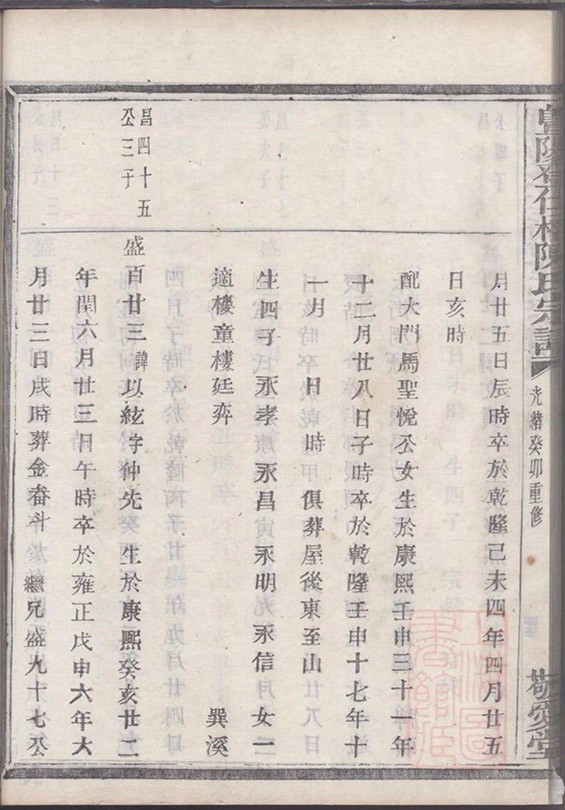 暨陽 仁村陳氏宗譜
光緒癸卯重修
敬愛堂
月廿五日辰時卒於乾隆己未四年四月廿五
日亥時
配大門馬聖悅公女生於康熙壬申三十一年
十二月廿八日子時卒於乾隆壬申十七年十
一月 日 時 俱葬屋後東至山
生四子 永孝 永昌 永明 永信 女一
適樓童樓廷弈 巽溪
昌四十五
公三子
盛百廿三諱以絃字仲先 生於康熙癸亥廿二
年閏六月廿三日午時卒於雍正戊申六年大
月廿三日戌時葬金畚斗 繼兄盛九十七公